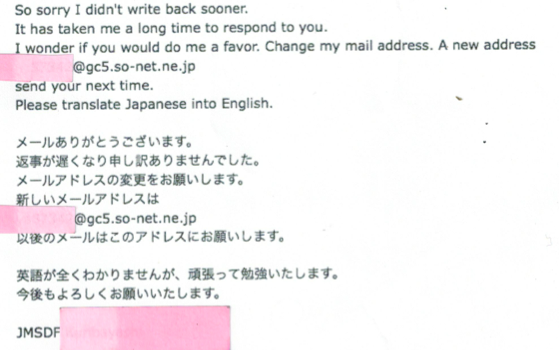 So sorry I didn't write back sooner.
It has taken me a long time to respond to you.
I wonder if you would do me a favor. Change my mail address. A new address
@gc5.so-net.ne.jp
send your next time.
Please translate Japanese into English.
メールありがとうございます。
返事が遅くなり申し訳ありませんでした。
メールアドレスの変更をお願いします。
新しいメールアドレスは
@gc5.so-net.ne.jp
以後のメールはこのアドレスにお願いします。
英語が全くわかりませんが、頑張って勉強いたします。
今後もよろしくお願いいたします。
JMSDF